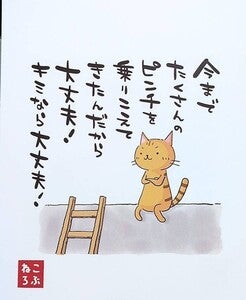 今まで
たくさんの
ピンチを
乗りこえて
きたんだから
大丈夫！
キミなら大丈夫！
こぶ
ねろ